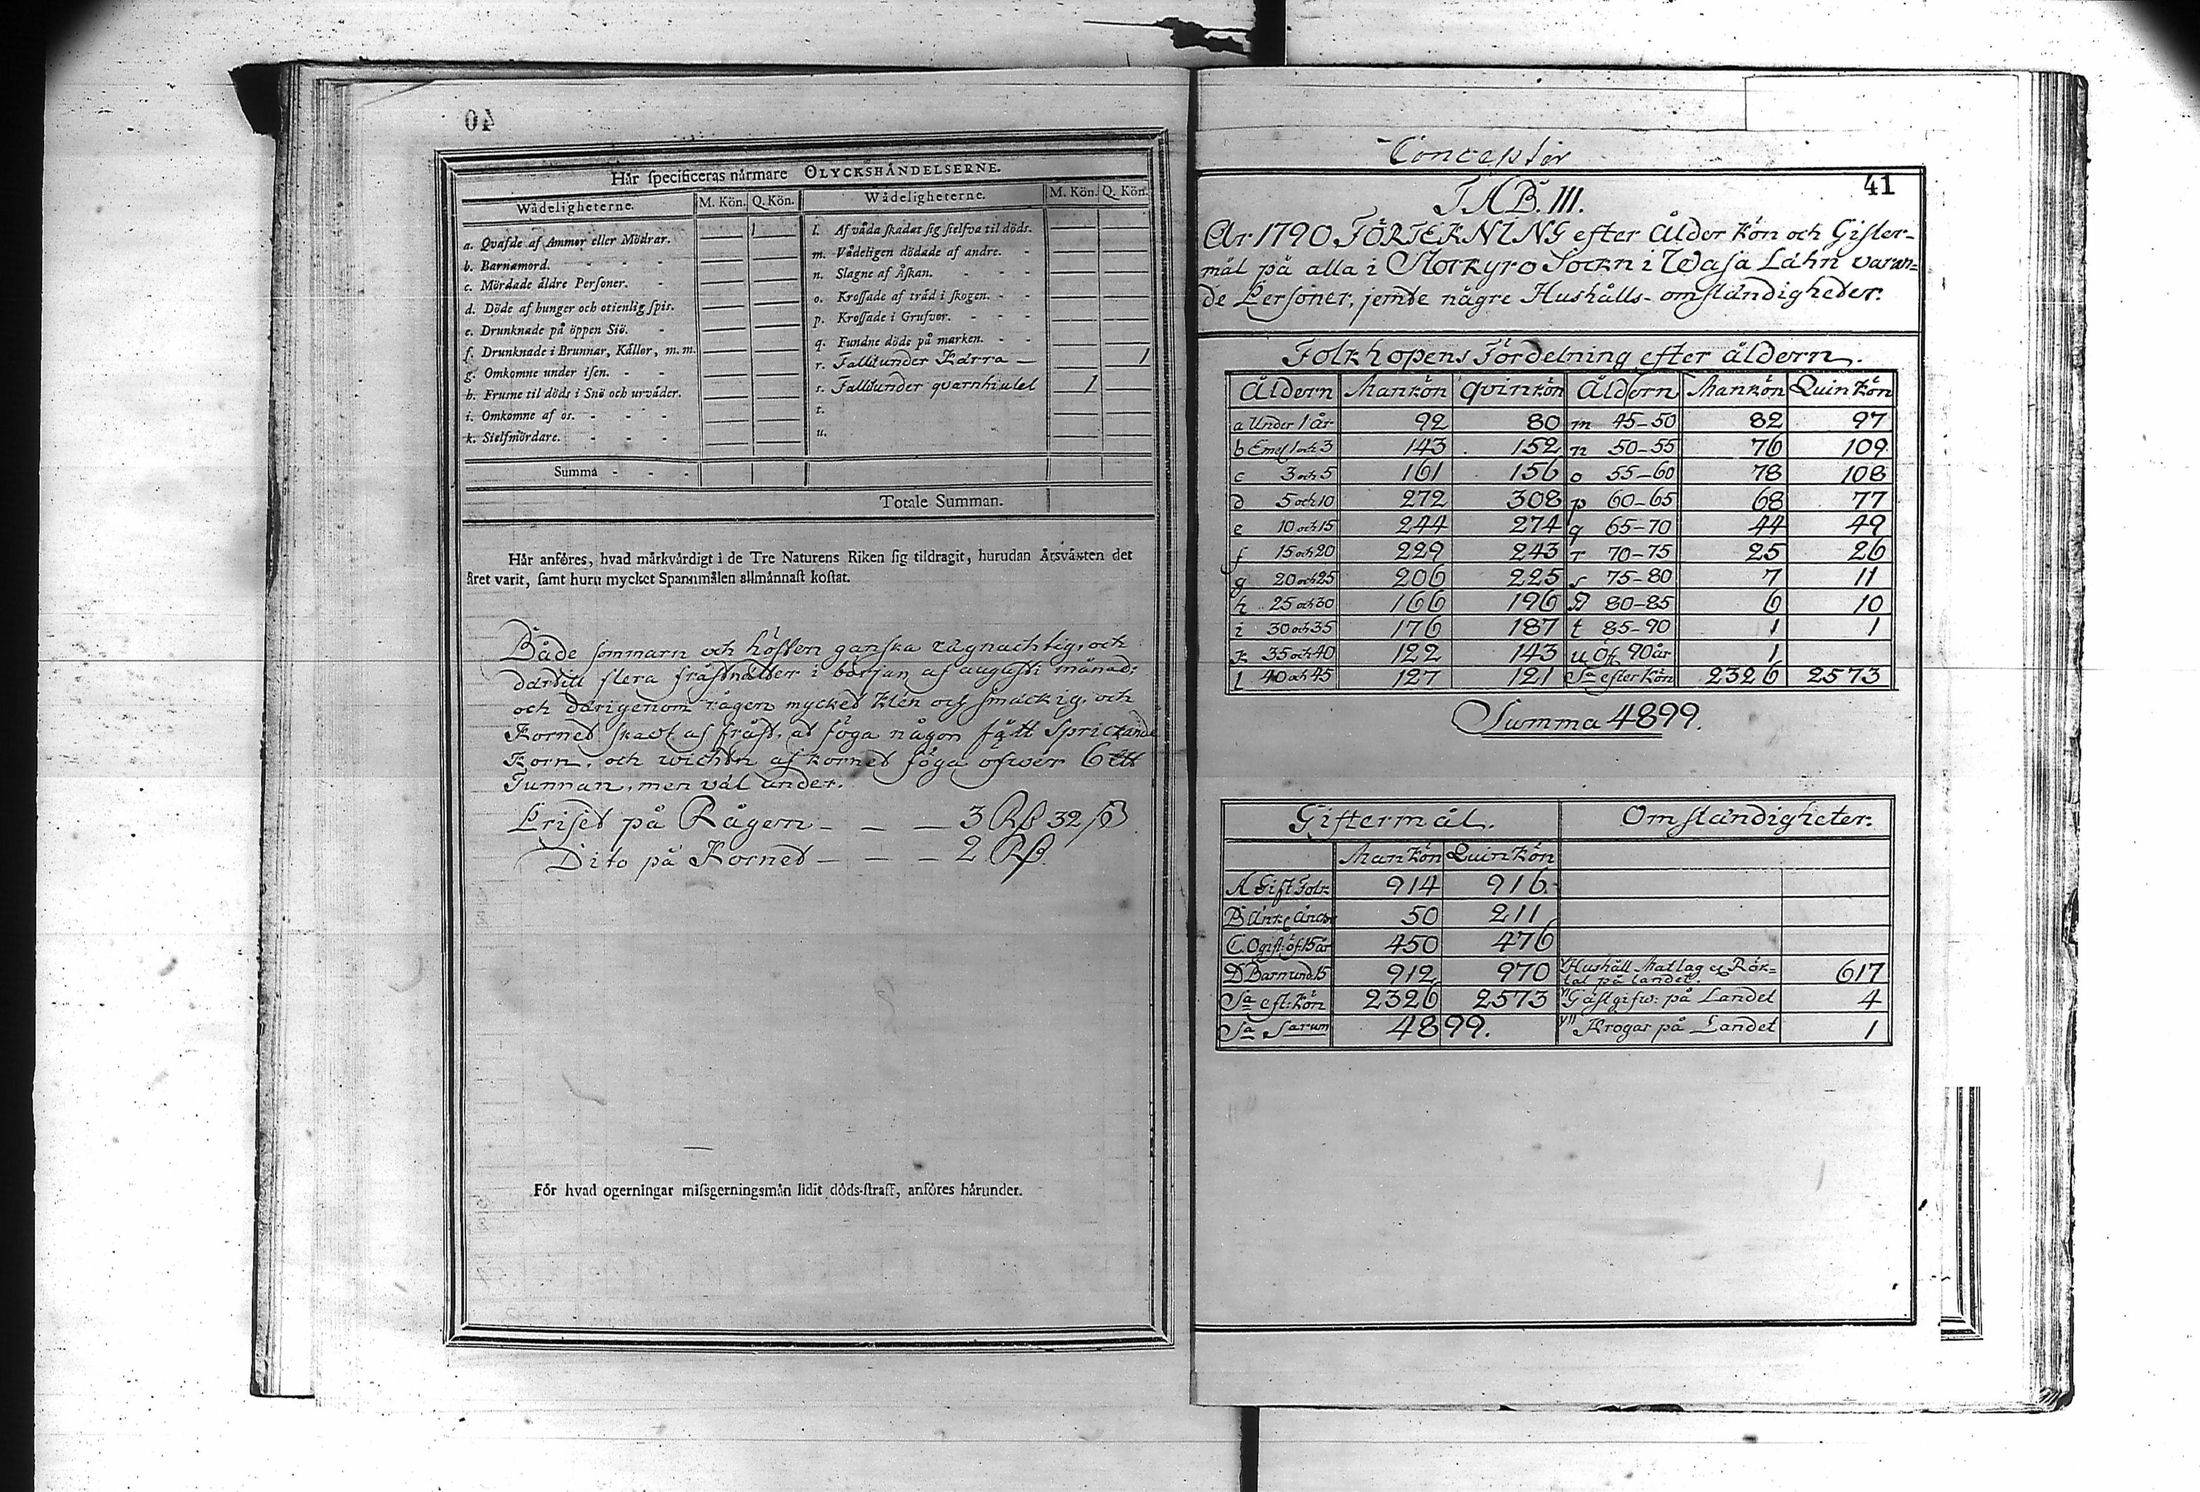 40
Här specificeras närmare OLYCKSHÄNDELSERNE.
Wådeligheterne. M. Kön. Q. Kön. Wådeligheterne. M. Kön. Q. Kön.
a. Qvafde af Ammor eller Mödrar. 1 l. Af våda skadat sig sielfva til döds.
b. Barnamord. m. Vådeligen dödade af andre.
c. Mördade äldre Personer. n. Slagne af Åskan.
d. Döde af hunger och otienlig spis. o. Krossade af träd i skogen.
e. Drunknade på öppen Siö. p. Krossade i Grufvor.
f. Drunknade i Brunnar, Källor, m. m. q. Fundne döde på marken.
g. Omkomne under isen. r. Fallit under Kärra 1
h. Frusne til döds i Snö och urväder. s. Fallit under qvarnhiulet 1
i. Omkomne af os. t.
k. Sielfmördare. u.
Summa
Totale Summan.
Här anföres, hvad märkvärdigt i de Tre Naturens Riken sig tildragit, hurudan Årsväxten det
året varit, samt huru mycket Spannmålen allmännast kostat.
Både sommarn och hösten ganska rägnachtig, och
därtill flera fråstnätter i början af augusti månad:
och därigenom rågen mycket klen och smackig, och
Kornet skavt af fråst, at föga någon fått Sprickande
Korn, och wichten af kornet föga öfwer 6
Tunnan, men väl under.
Priset på Rågen - - - 3 Rß 32 ß
Dito på Kornet - - - 2 Rß
För hvad ogerningar missgerningsmän lidit döds-straff, anföres härunder.
Conceptor
41
TAB. III.
År 1790 FÖRTEKNING efter Ålder Kön och Gifter-
mål på alla i Storkyro Sockn i Wasa Lähn varan-
de Personer, jemte någre Hushålls-omständigheder.
Folkhopens Fördelning efter åldern.
Åldern Mankön Qvinkön Åldern Mankön Quinkön
a Under 1 år 92 80 m 45-50 82 97
b Emel 1 och 3 143 152 n 50-55 76 109
c 3 och 5 161 156 o 55-60 78 108
d 5 och 10 272 308 p 60-65 68 77
e 10 och 15 244 274 q 65-70 44 49
f 15 och 20 229 243 r 70-75 25 26
g 20 och 25 206 225 s 75-80 7 11
h 25 och 30 166 196 80-85 6 10
i 30 och 35 176 187 t 85-90 1 1
k 35 och 40 122 143 u Öf 90 år 1
l 40 och 45 127 121 Sa efter Kön 2326 2573
Summa 4899.
Giftermål. Omständigheter.
Mankön Quinkön
A Gift Folk 914 916
B Änk 50 211
C. Ogift: öf: 15 år 450 476
D Barn und 15 912 970 V Hushåll Matlag el Rök=
tal på landet. 617
Sa eft: Kön 2326 2573 VI Gästgifw: på Landet 4
Sa Sarum 4899. VII Krogar på Landet 1